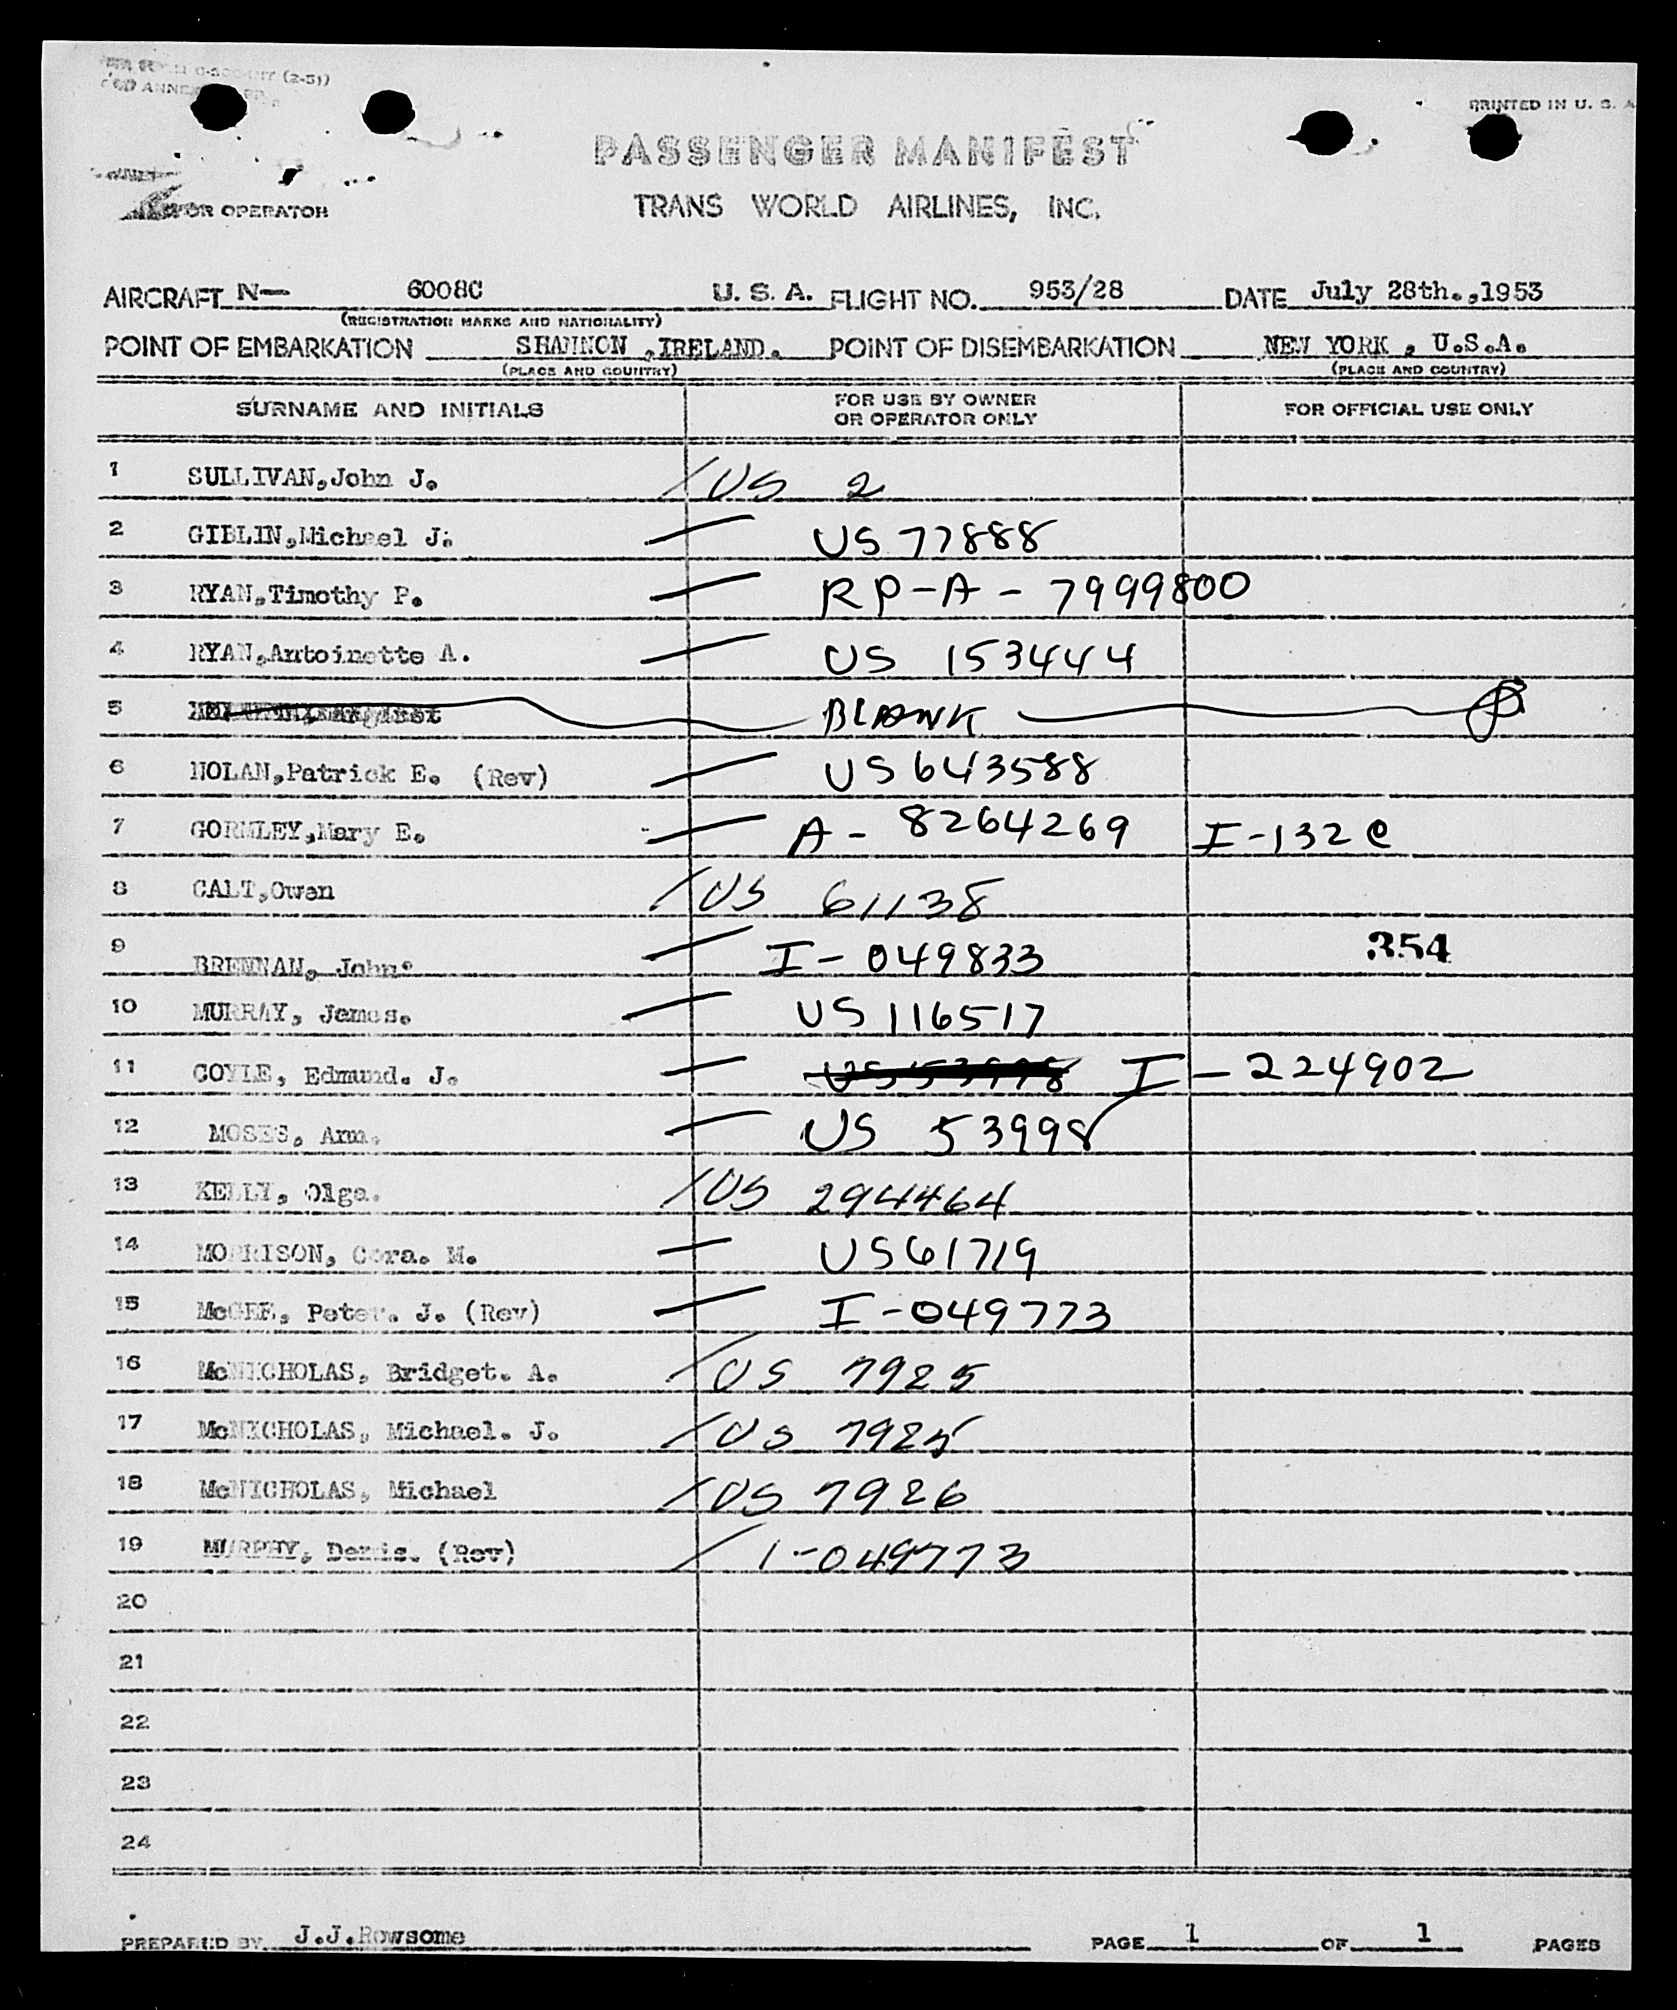 (2-51)
PRINTED IN U. S. A
PASSENGER MANIFEST
OR OPERATOR
TRANS WORLD AIRLINES, INC.
AIRCRAFT N— 6008C U. S. A. FLIGHT NO. 953/28 DATE July 28th.,1953
(REGISTRATION MARKS AND NATIONALITY)
POINT OF EMBARKATION SHANNON ,IRELAND. POINT OF DISEMBARKATION NEW YORK , U.S.A.
(PLACE AND COUNTRY) (PLACE AND COUNTRY)
SURNAME AND INITIALS FOR USE BY OWNER OR OPERATOR ONLY FOR OFFICIAL USE ONLY
1 SULLIVAN,John J. US 2
2 GIBLIN,Michael J. US 77888
3 RYAN,Timothy P. RP-A - 7999800
4 RYAN,Antoinette A. US 153444
5 BLANK
6 NOLAN,Patrick E. (Rev) US 643588
7 GORMLEY,Mary E. A - 8264269 I-132 e
8 CALT,Owen US 61138
9 BRENNAN, John. I - 049833 354
10 MURRAY, James. US 116517
11 COYLE, Edmund. J. US 53998 I - 224902
12 MOSES, Ann. US 53998
13 KELLY, Olga. US 294464
14 MORRISON, Cora. M. US 61719
15 McGEE, Peter. J. (Rev) I -049773
16 McNICHOLAS, Bridget. A. US 7925
17 McNICHOLAS, Michael. J. US 7925
18 McNICHOLAS, Michael US 7926
19 MURPHY, Denis. (Rev) I -049773
20
21
22
23
24
PREPARED BY J.J.Rowsome PAGE 1 OF 1 PAGES